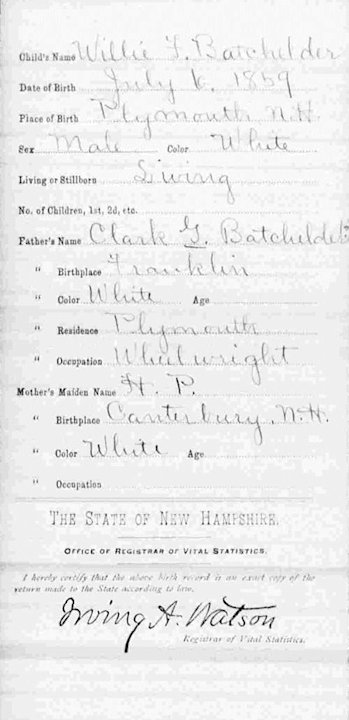 Child's Name Willie F. Batchelder
Date of Birth July 6, 1859
Place of Birth Plymouth N.H.
Sex Male Color White
Living or Stillborn Living
No. of Children, 1st, 2d, etc.
Father's Name Clark G. Batchelder
" Birthplace Franklin
" Color White Age
" Residence Plymouth
" Occupation Wheelwright
Mother's Maiden Name H. P.
" Birthplace Canterbury, N.H.
" Color White Age
" Occupation
THE STATE OF NEW HAMPSHIRE.
OFFICE OF REGISTRAR OF VITAL STATISTICS.
I hereby certify that the above birth record is an exact copy of the
return made to the State according to law.
Irving A. Watson
Registrar of Vital Statistics.